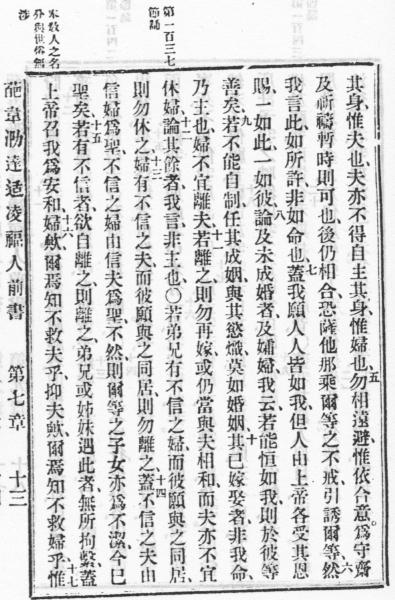 第一百三十七節
論
教人之名
外與世俗無
涉
其身、惟夫也、夫亦不得自主其身、惟婦也、五勿相遠避、惟依合意、爲守齋
及祈禱暫時則可也、後仍相合、恐薩他那乘爾等之不戒、引誘爾等、六然
我言此如所許、非如命也、七蓋我願人人皆如我、但人由上帝各受其恩
賜、一如此、一如彼、八論及未成婚者、及孀婦、我云、若能恒如我、則於彼等
善矣、九若不能自制、任其成姻、與其慾熾、莫如婚姻、十其已嫁娶者、非我命
乃主也、婦不宜離夫、十一若離之、則勿再嫁、或仍當與夫相和、而夫亦不宜
休婦、十二論其餘者、我言、非主也、〇若弟兄有不信之婦、而彼願與之同居、
則勿休之、十三婦有不信之夫、而彼願與之同居、則勿離之、十四蓋不信之夫、由
信婦爲聖、不信之婦、由信夫爲聖、不然、則爾等之子女亦爲不潔、今已
聖矣、十五若有不信者、欲自離之、則離之、弟兄或姊妹遇此者、無所拘繫、蓋
上帝召我爲安和、十六婦歟、爾焉知不救夫乎、抑夫歟、爾焉知不救婦乎、十七惟
葩韋泐達适凌福人前書　第七章　十三